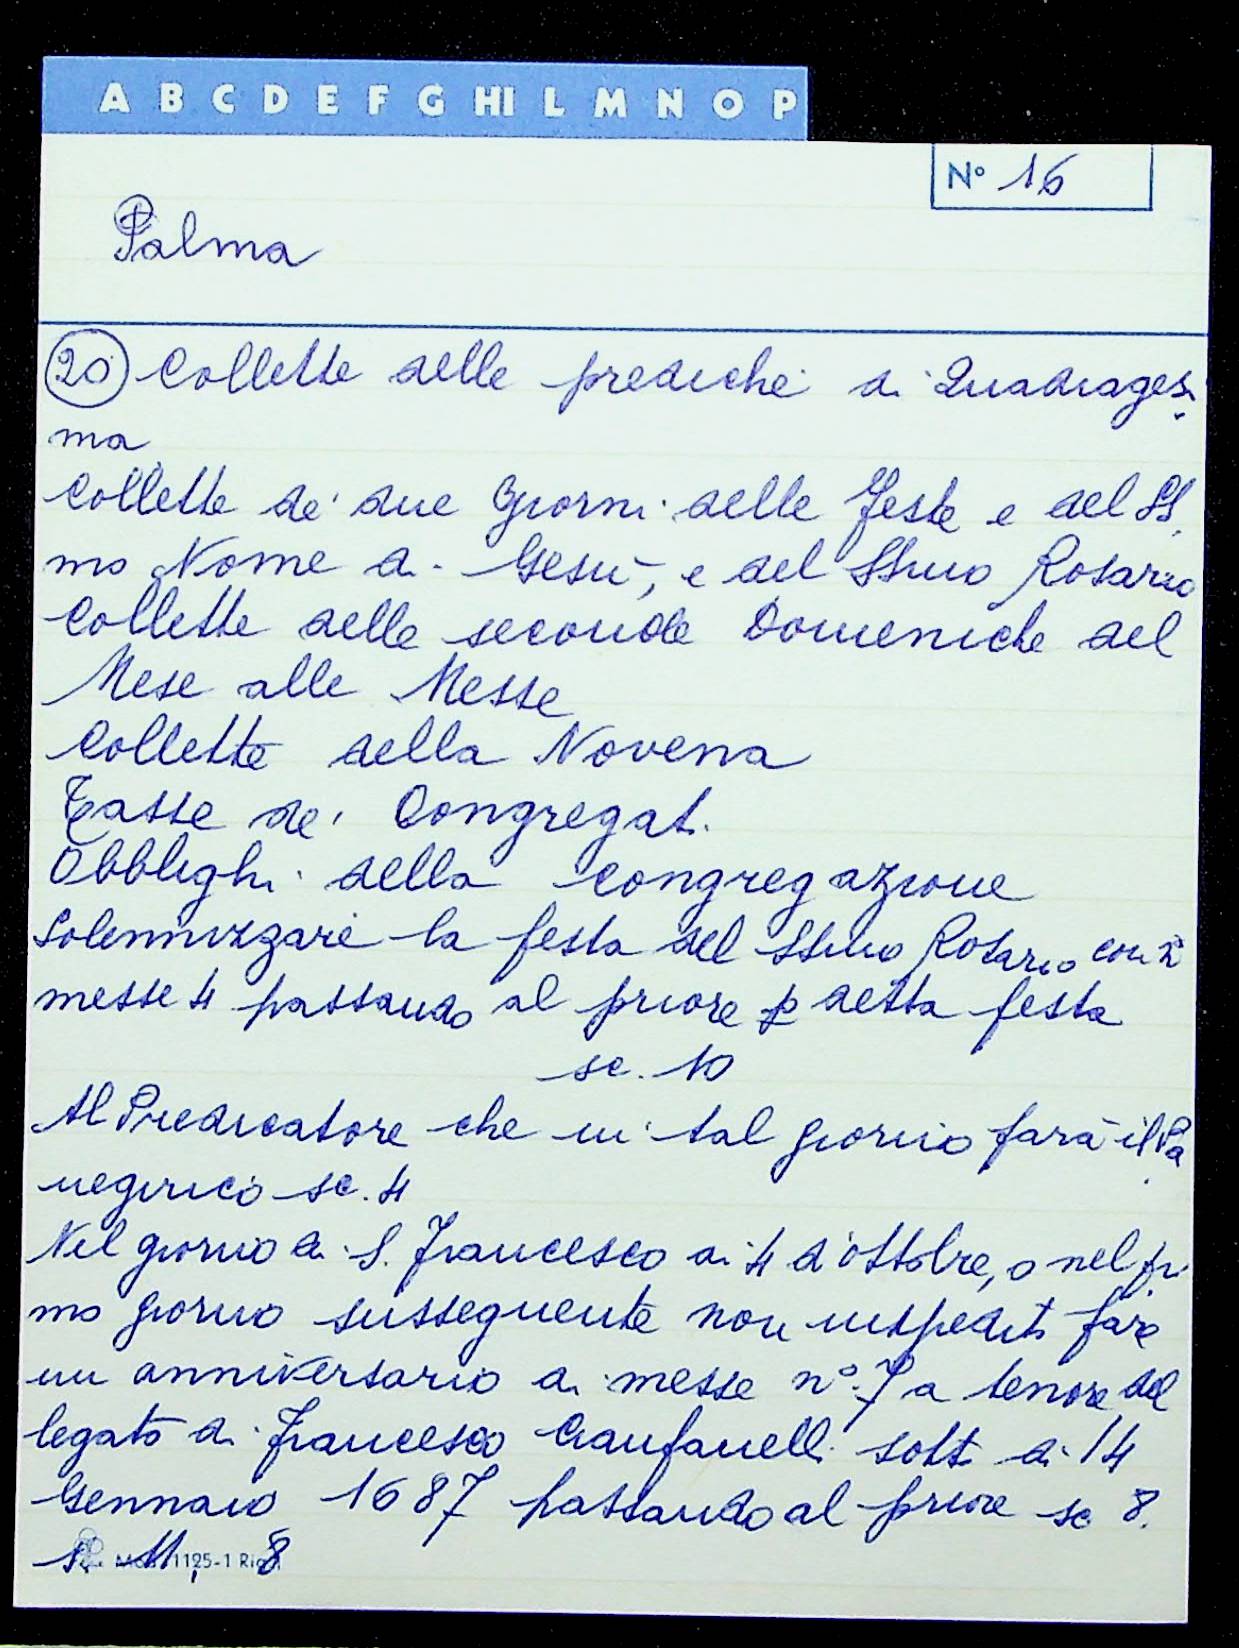 A B C D E F G HI L M N O P
N° 16
Palma
20 Collette delle prediche di Quadragesi
ma
Collette de' due Giorni delle Feste e del SS.
mo Nome di Gesù, e del SSmo Rosario
Collette delle seconde Domeniche del
Mese alle Messe
Collette della Novena
Tasse de' Congregat.
Obblighi della congregazione
Solennizzare la festa del SSmo Rosario con n°
messe 4 passando al priore p detta festa
sc. 10
Al Predicatore che in tal giorno farà il Pa
negirico sc. 4
Nel giorno di S. Francesco ai 4 d'ottobre, o nel pri
mo giorno susseguente non impedito fare
un anniversario di messe n°. 7 a tenore del
legato di Francesco Cianfanelli sotto di 14
Gennaio 1687 passando al priore sc 8.
11, 8
Mod. 1125-1